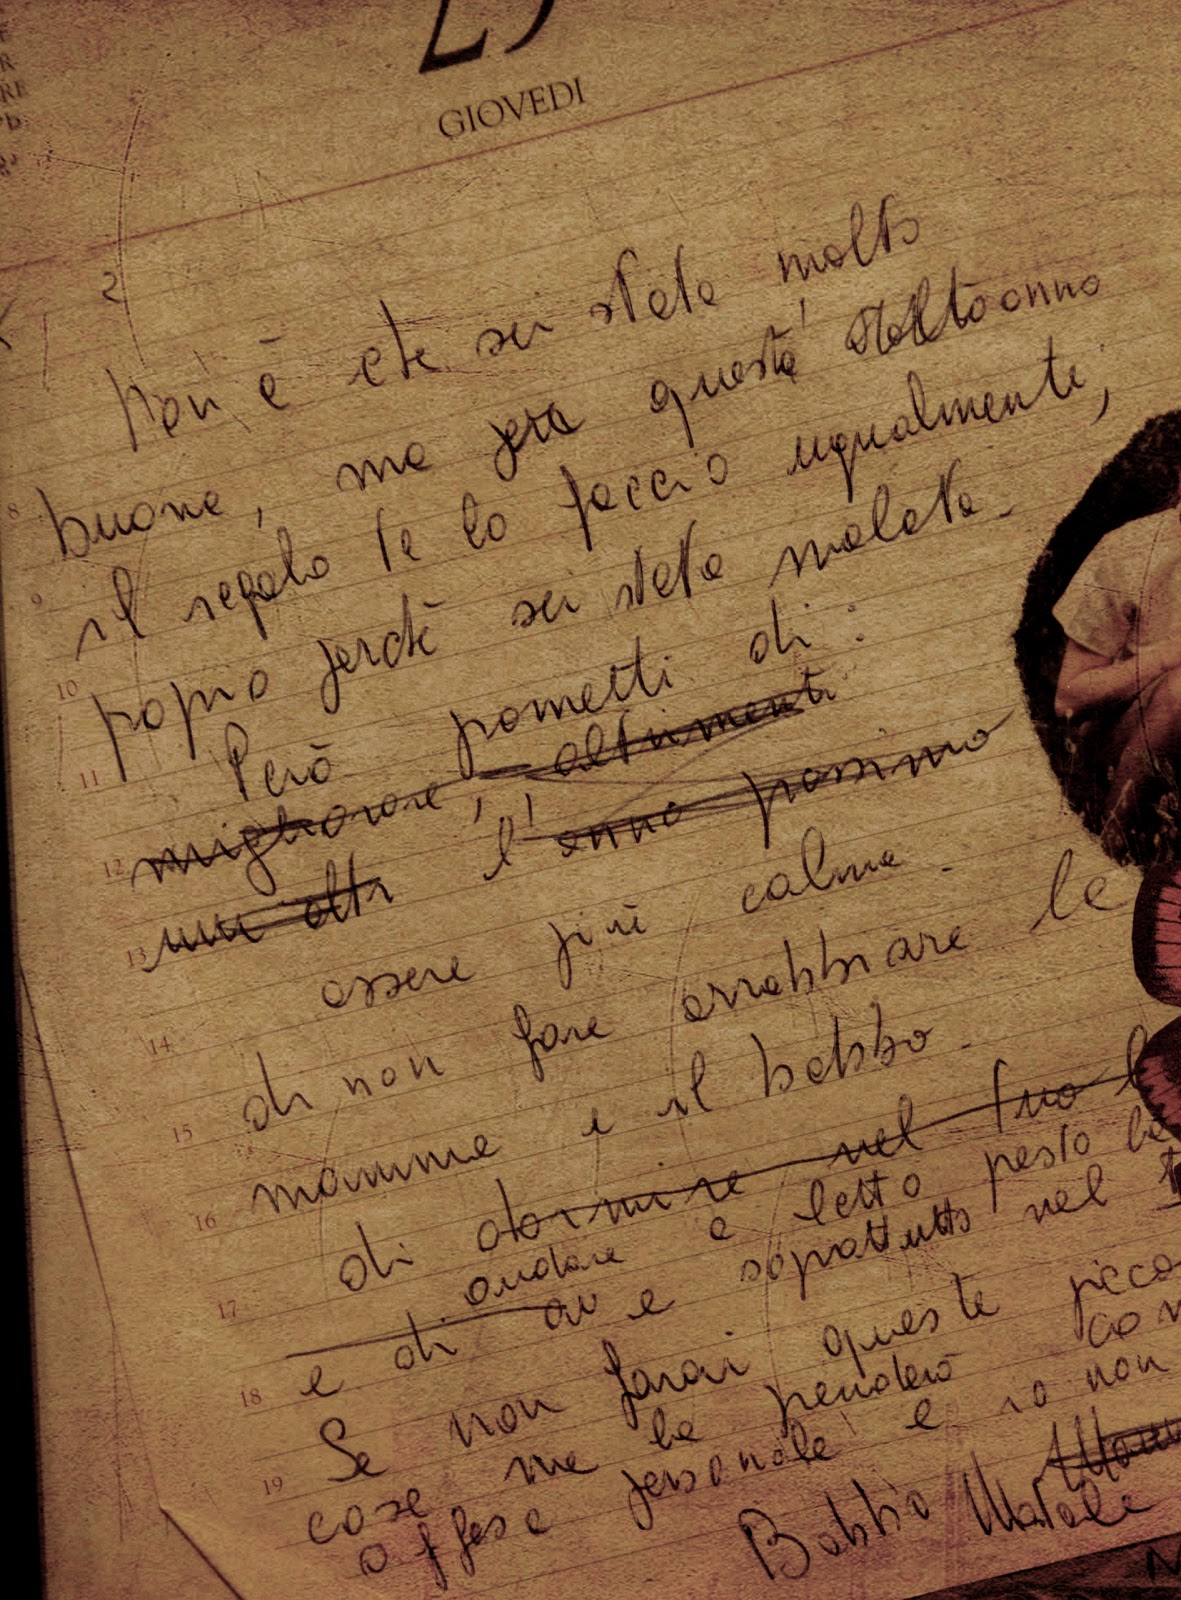 GIOVEDI
2
Non è che sei stata molto
buona, ma per questa volta
il regalo te lo faccio ugualmente,
proprio perchè sei stata malata.
Però prometti di:
migliorare, altrimenti
l'anno prossimo
essere più calma.
di non fare arrabbiare la
mamma e il babbo.
di dormire nel tuo
andare a letto presto
e di e soprattutto nel
Se non farai queste
cose me la prenderò
offesa personale e io non
Babbo Natale
8
9
10
11
12
13
14
15
16
17
18
19